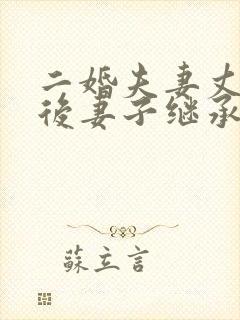 二婚夫妻丈
後妻子继承
蘇立言